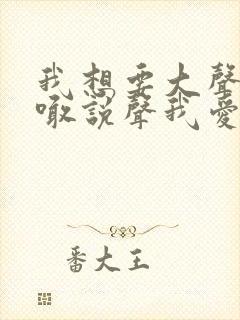 我想要大聲
噉說聲我愛
番大王